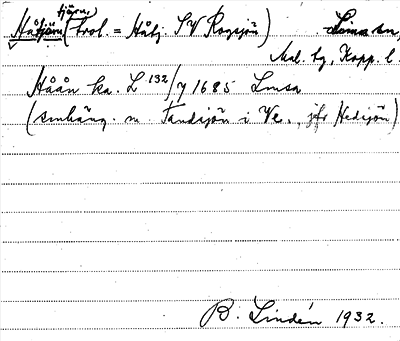 Håtjärn (trol = Håbj. SV Rogsjön) Lima sn,
tjärn,
Mal. tg, Kopp. l.
Håån ka. L 132/7 1685 Lmsa
(smhäng. m. Tandsjön i Ve., jfr Hedsjön)
B. Lindén 1932.